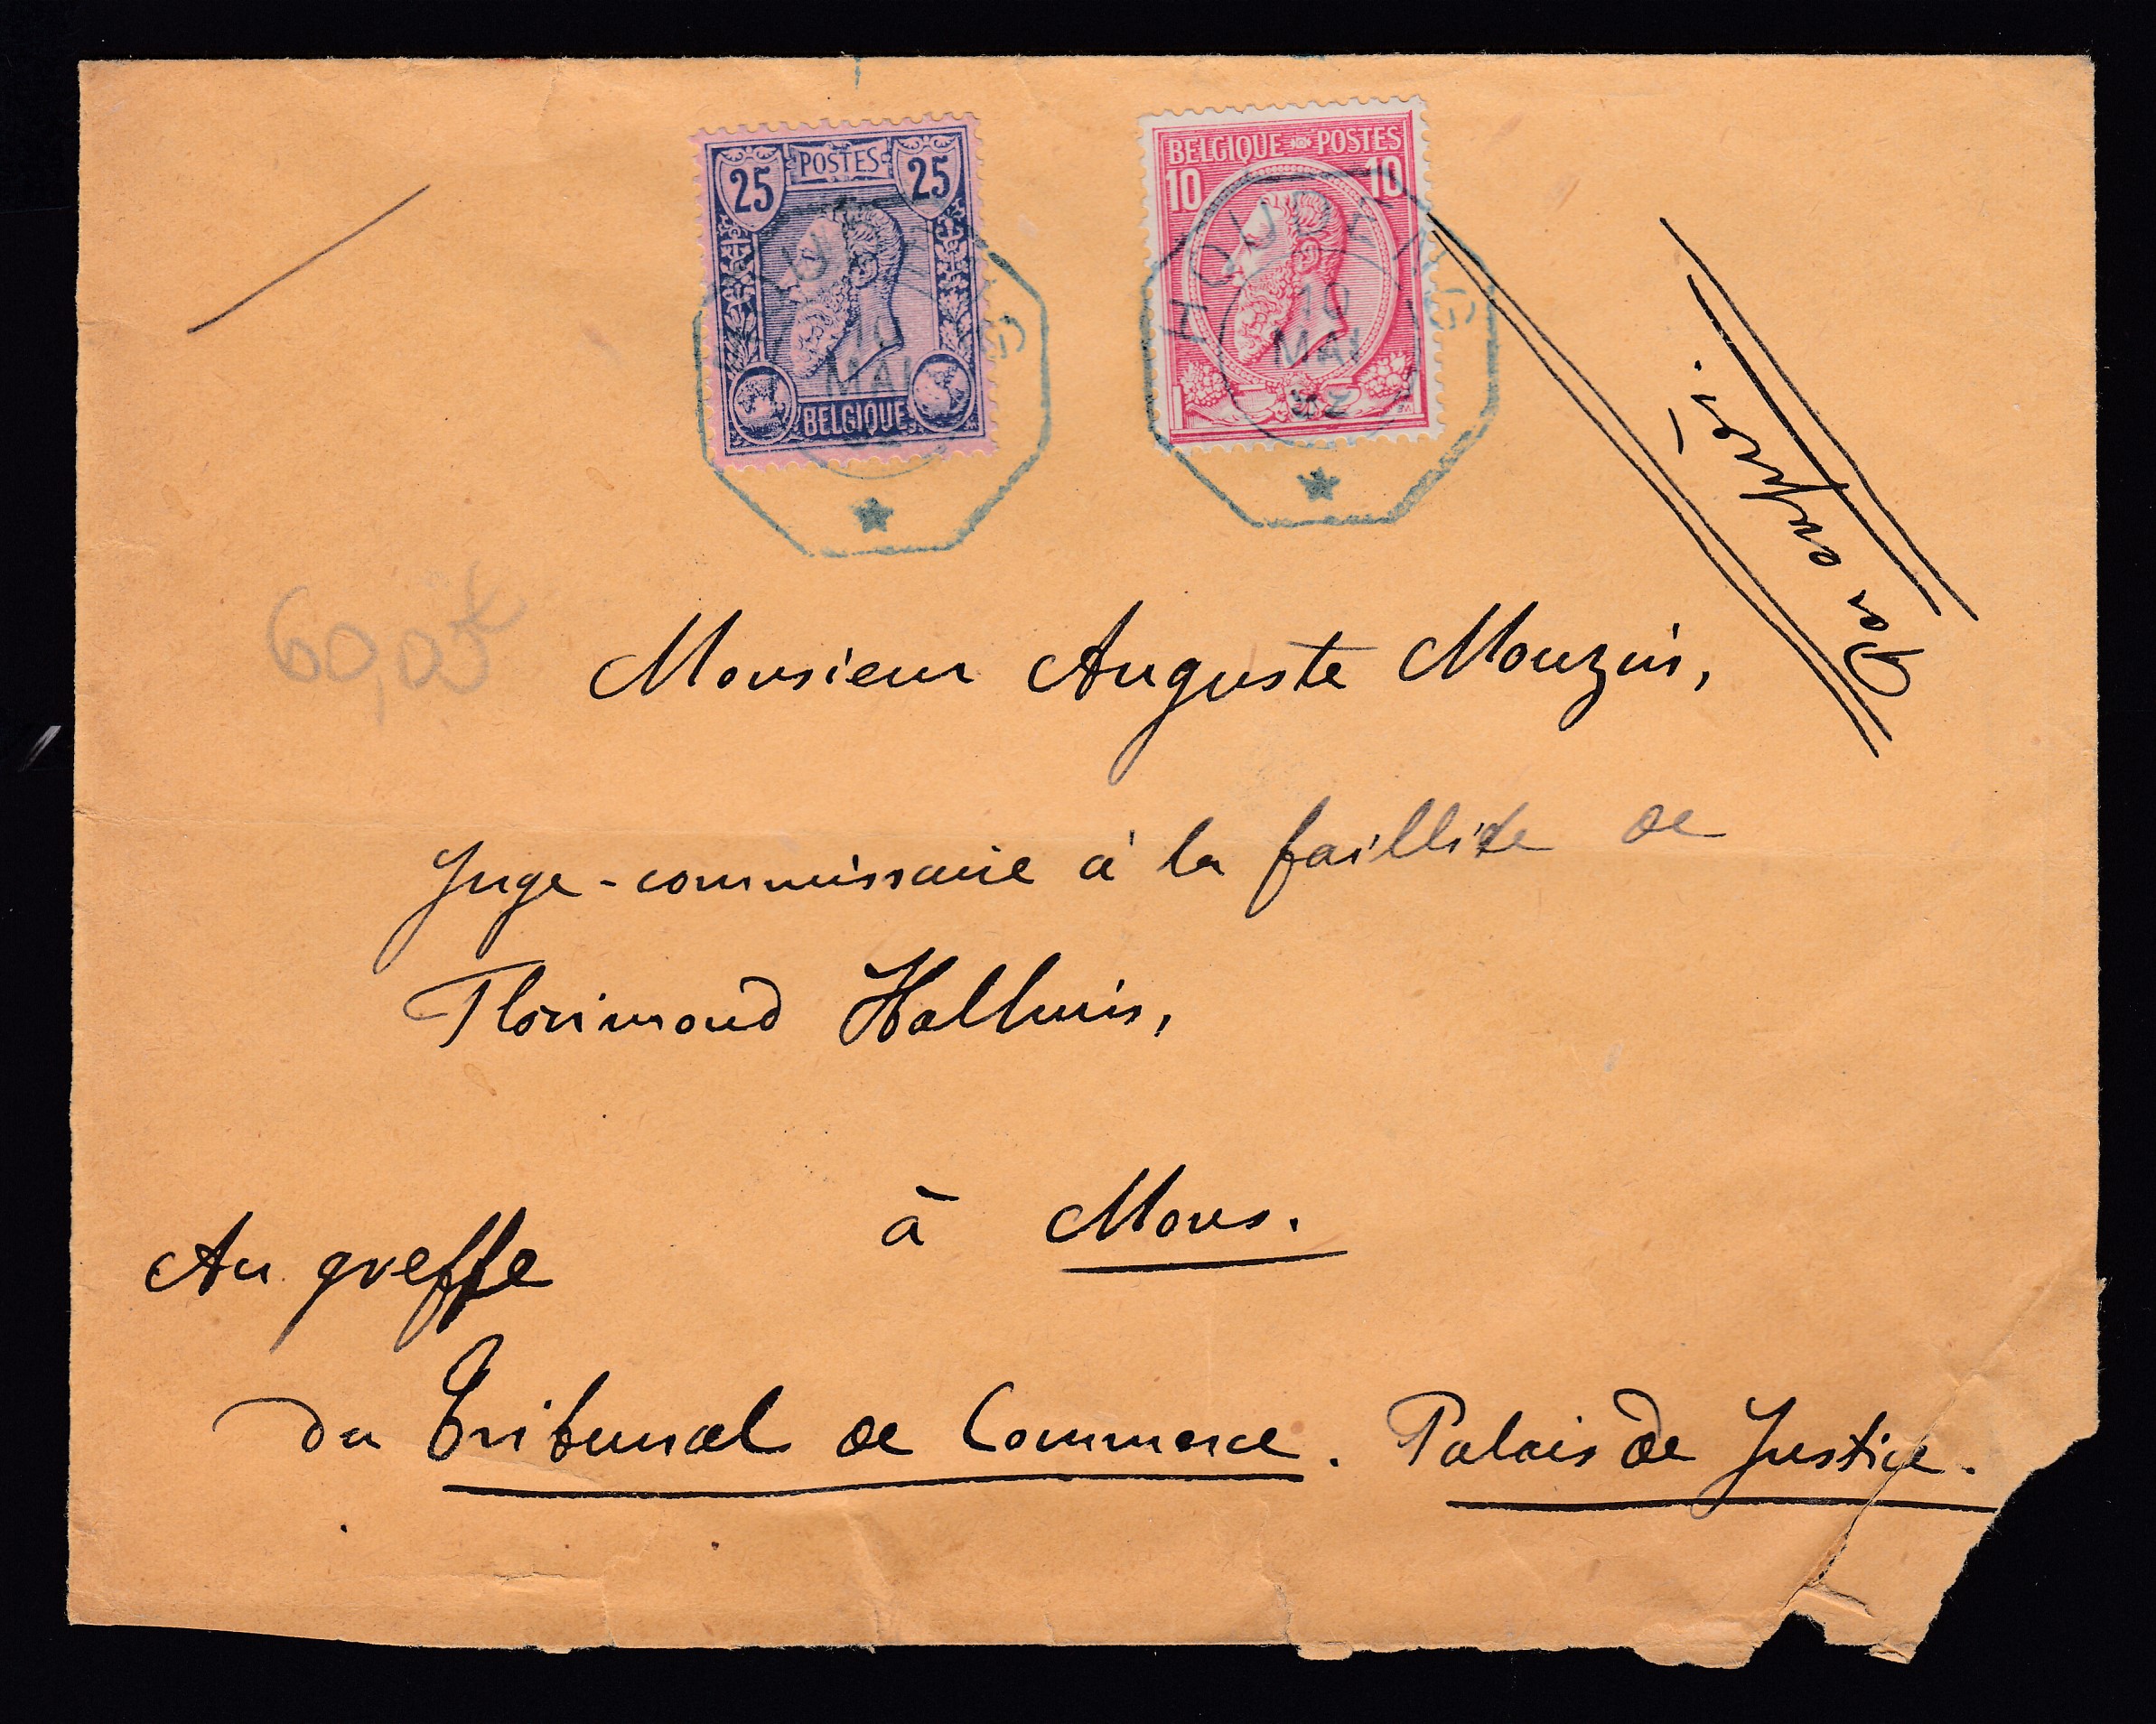 POSTES
25 25
BELGIQUE
10
MAI
BELGIQUE POSTES
10 10
HOUDENG
10
MAI
92
Par exprès.
60,0
Monsieur Auguste Mouzin,
Juge-commissaire à la faillite de
Florimond Halluin,
à Mons.
Au greffe
du Tribunal de Commerce. Palais de Justice.